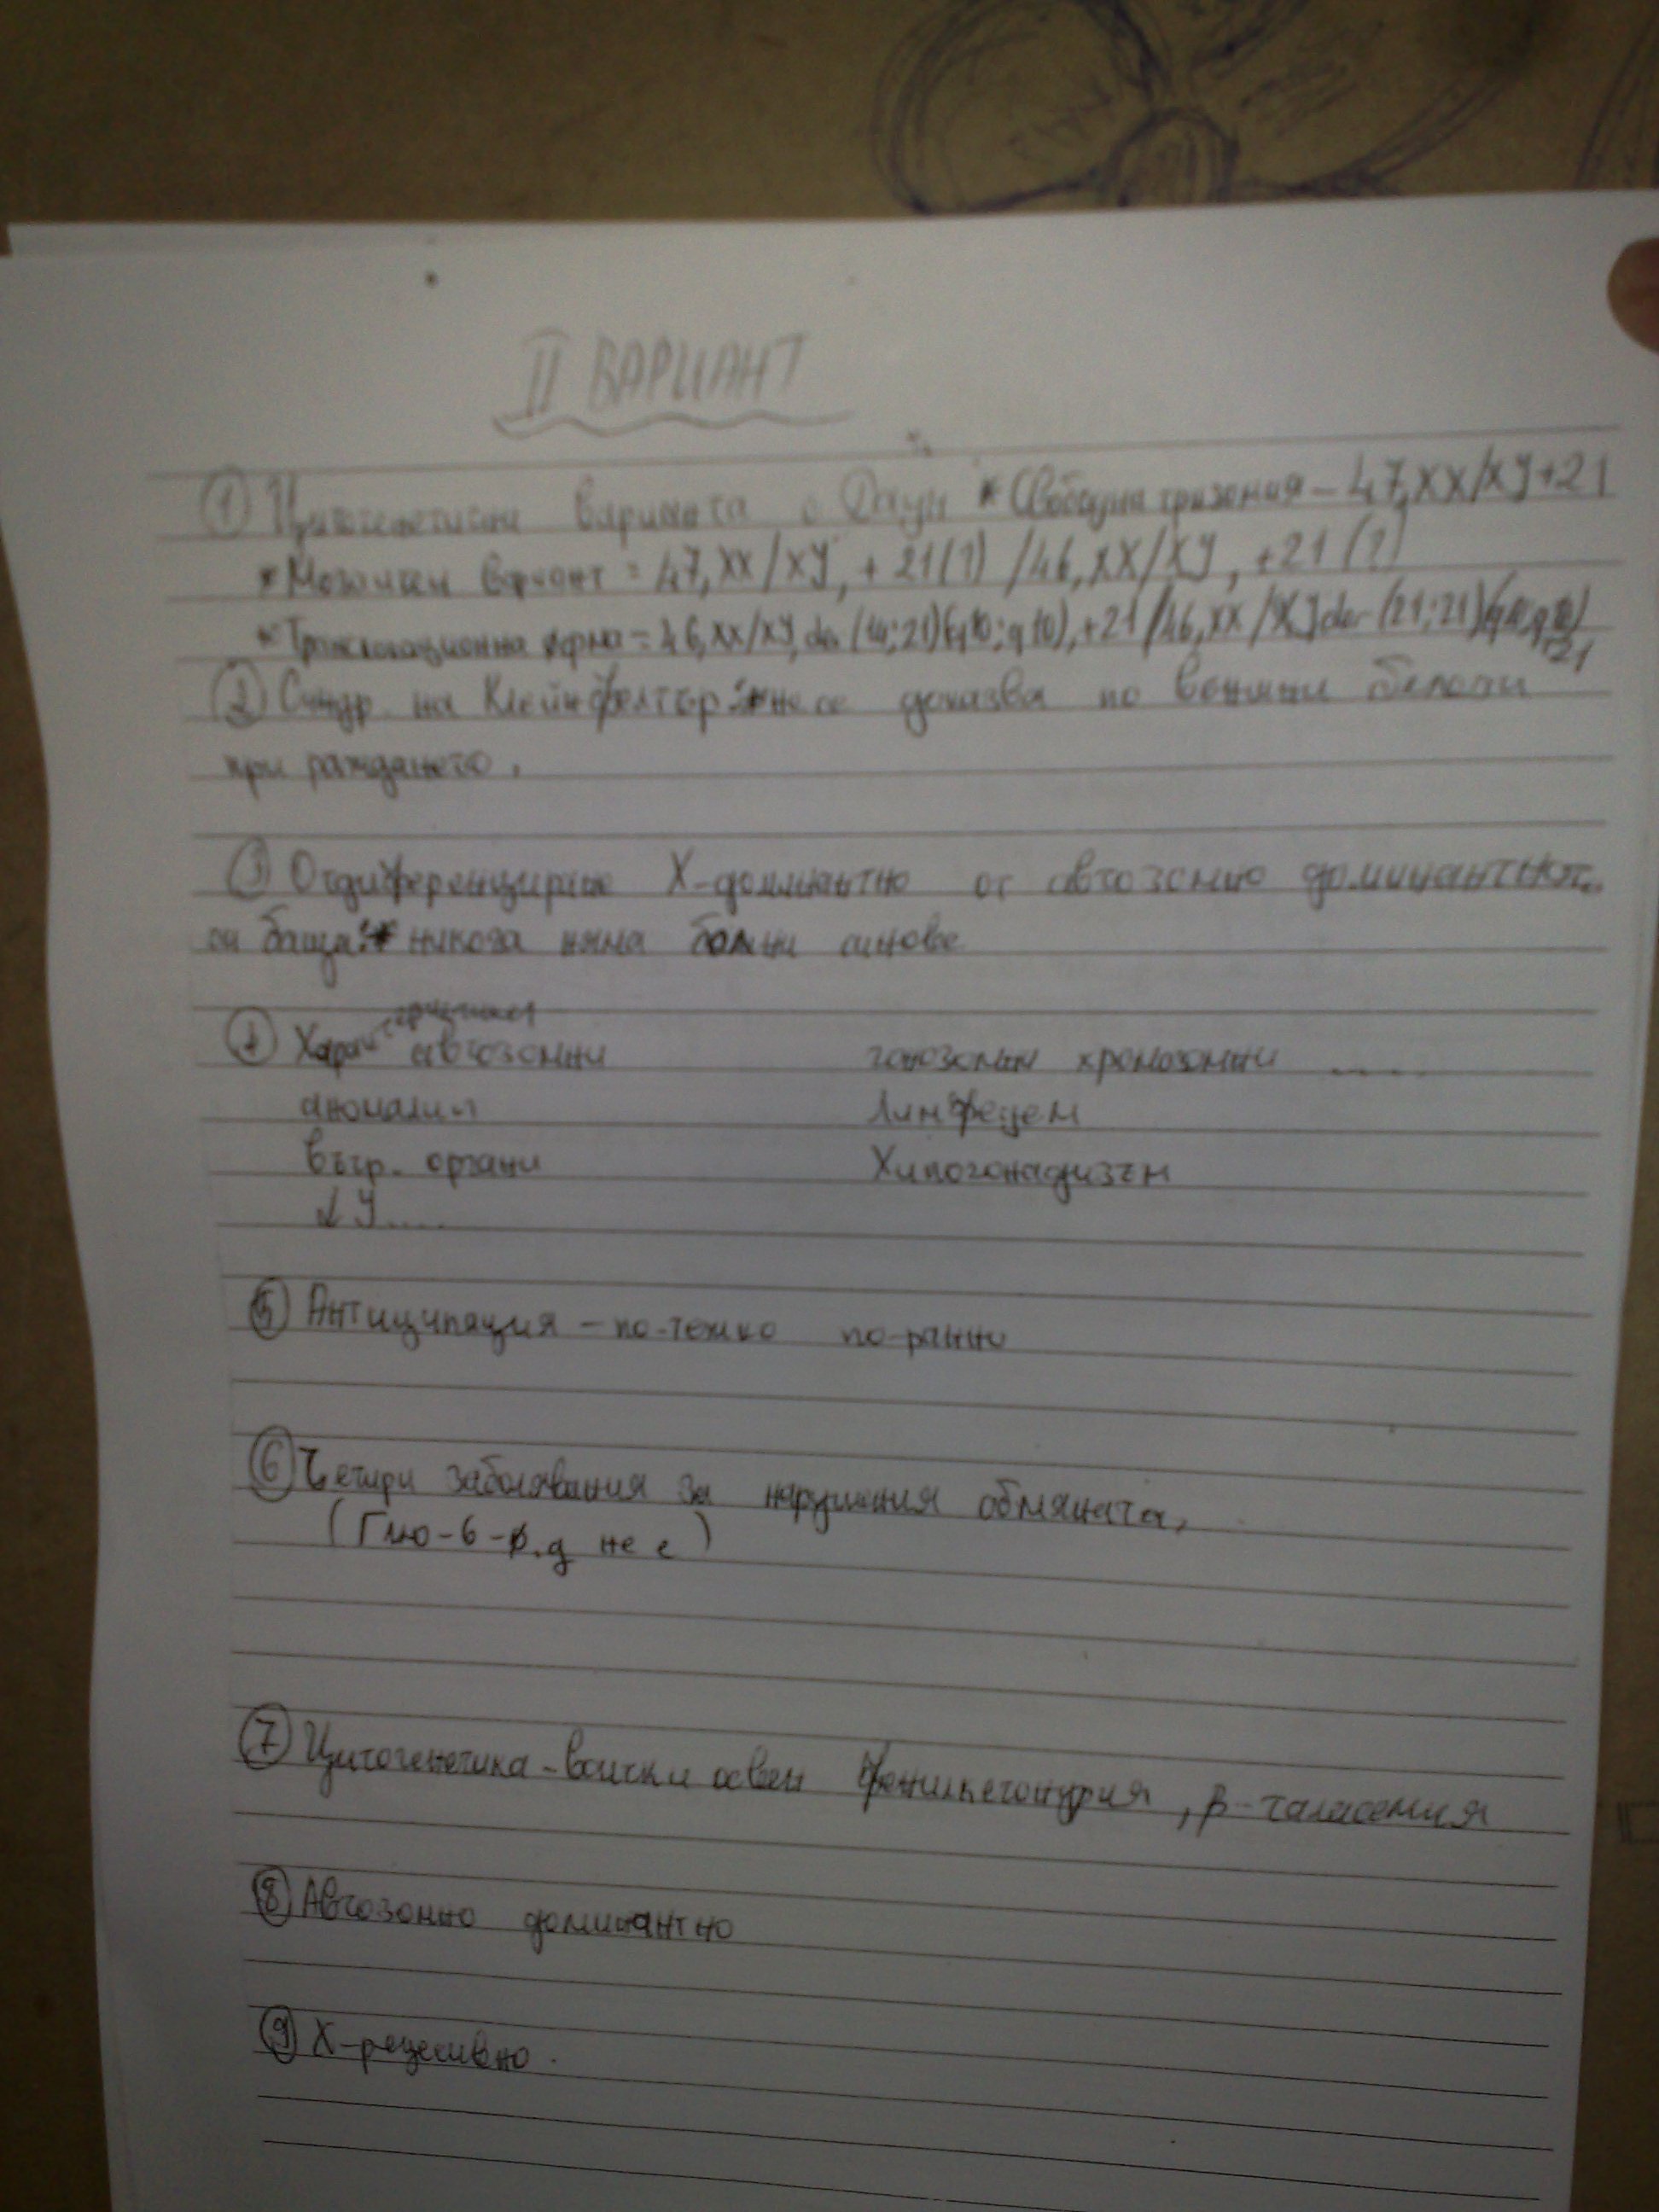 II ВАРИАНТ
① Цитогенетични варианта с Даун * Свободна тризомия – 47,XX/XY+21
* Мозаичен вариант = 47,XX/XY, +21(?) /46,XX/XY, +21(?)
* Транслокационна форма = 46,XX/XY, der (14;21)(q10;q10),+21 /46,XX/XY der (21;21)(q10;q10) +21
② Синдр. на Клейнфелтър :* не се доказва по външни белези
при раждането.
③ Отдиференциране X-доминантно от автозомно доминантно
он баща :* никога няма болни синове
автозомни гонозомни хромозомни ....
аномалии Лимфедем
вътр. органи Хипогонадизъм
↓ У....
⑤ Антиципация – по-тежко по-ранно
⑥ Четири заболявания за нарушения обмяната,
(Глю-6-ф.д не е)
⑦ Цитогенетика – всички освен Фенилкетонурия, β-таласемия
⑧ Автозомно доминантно
⑨ X-рецесивно.